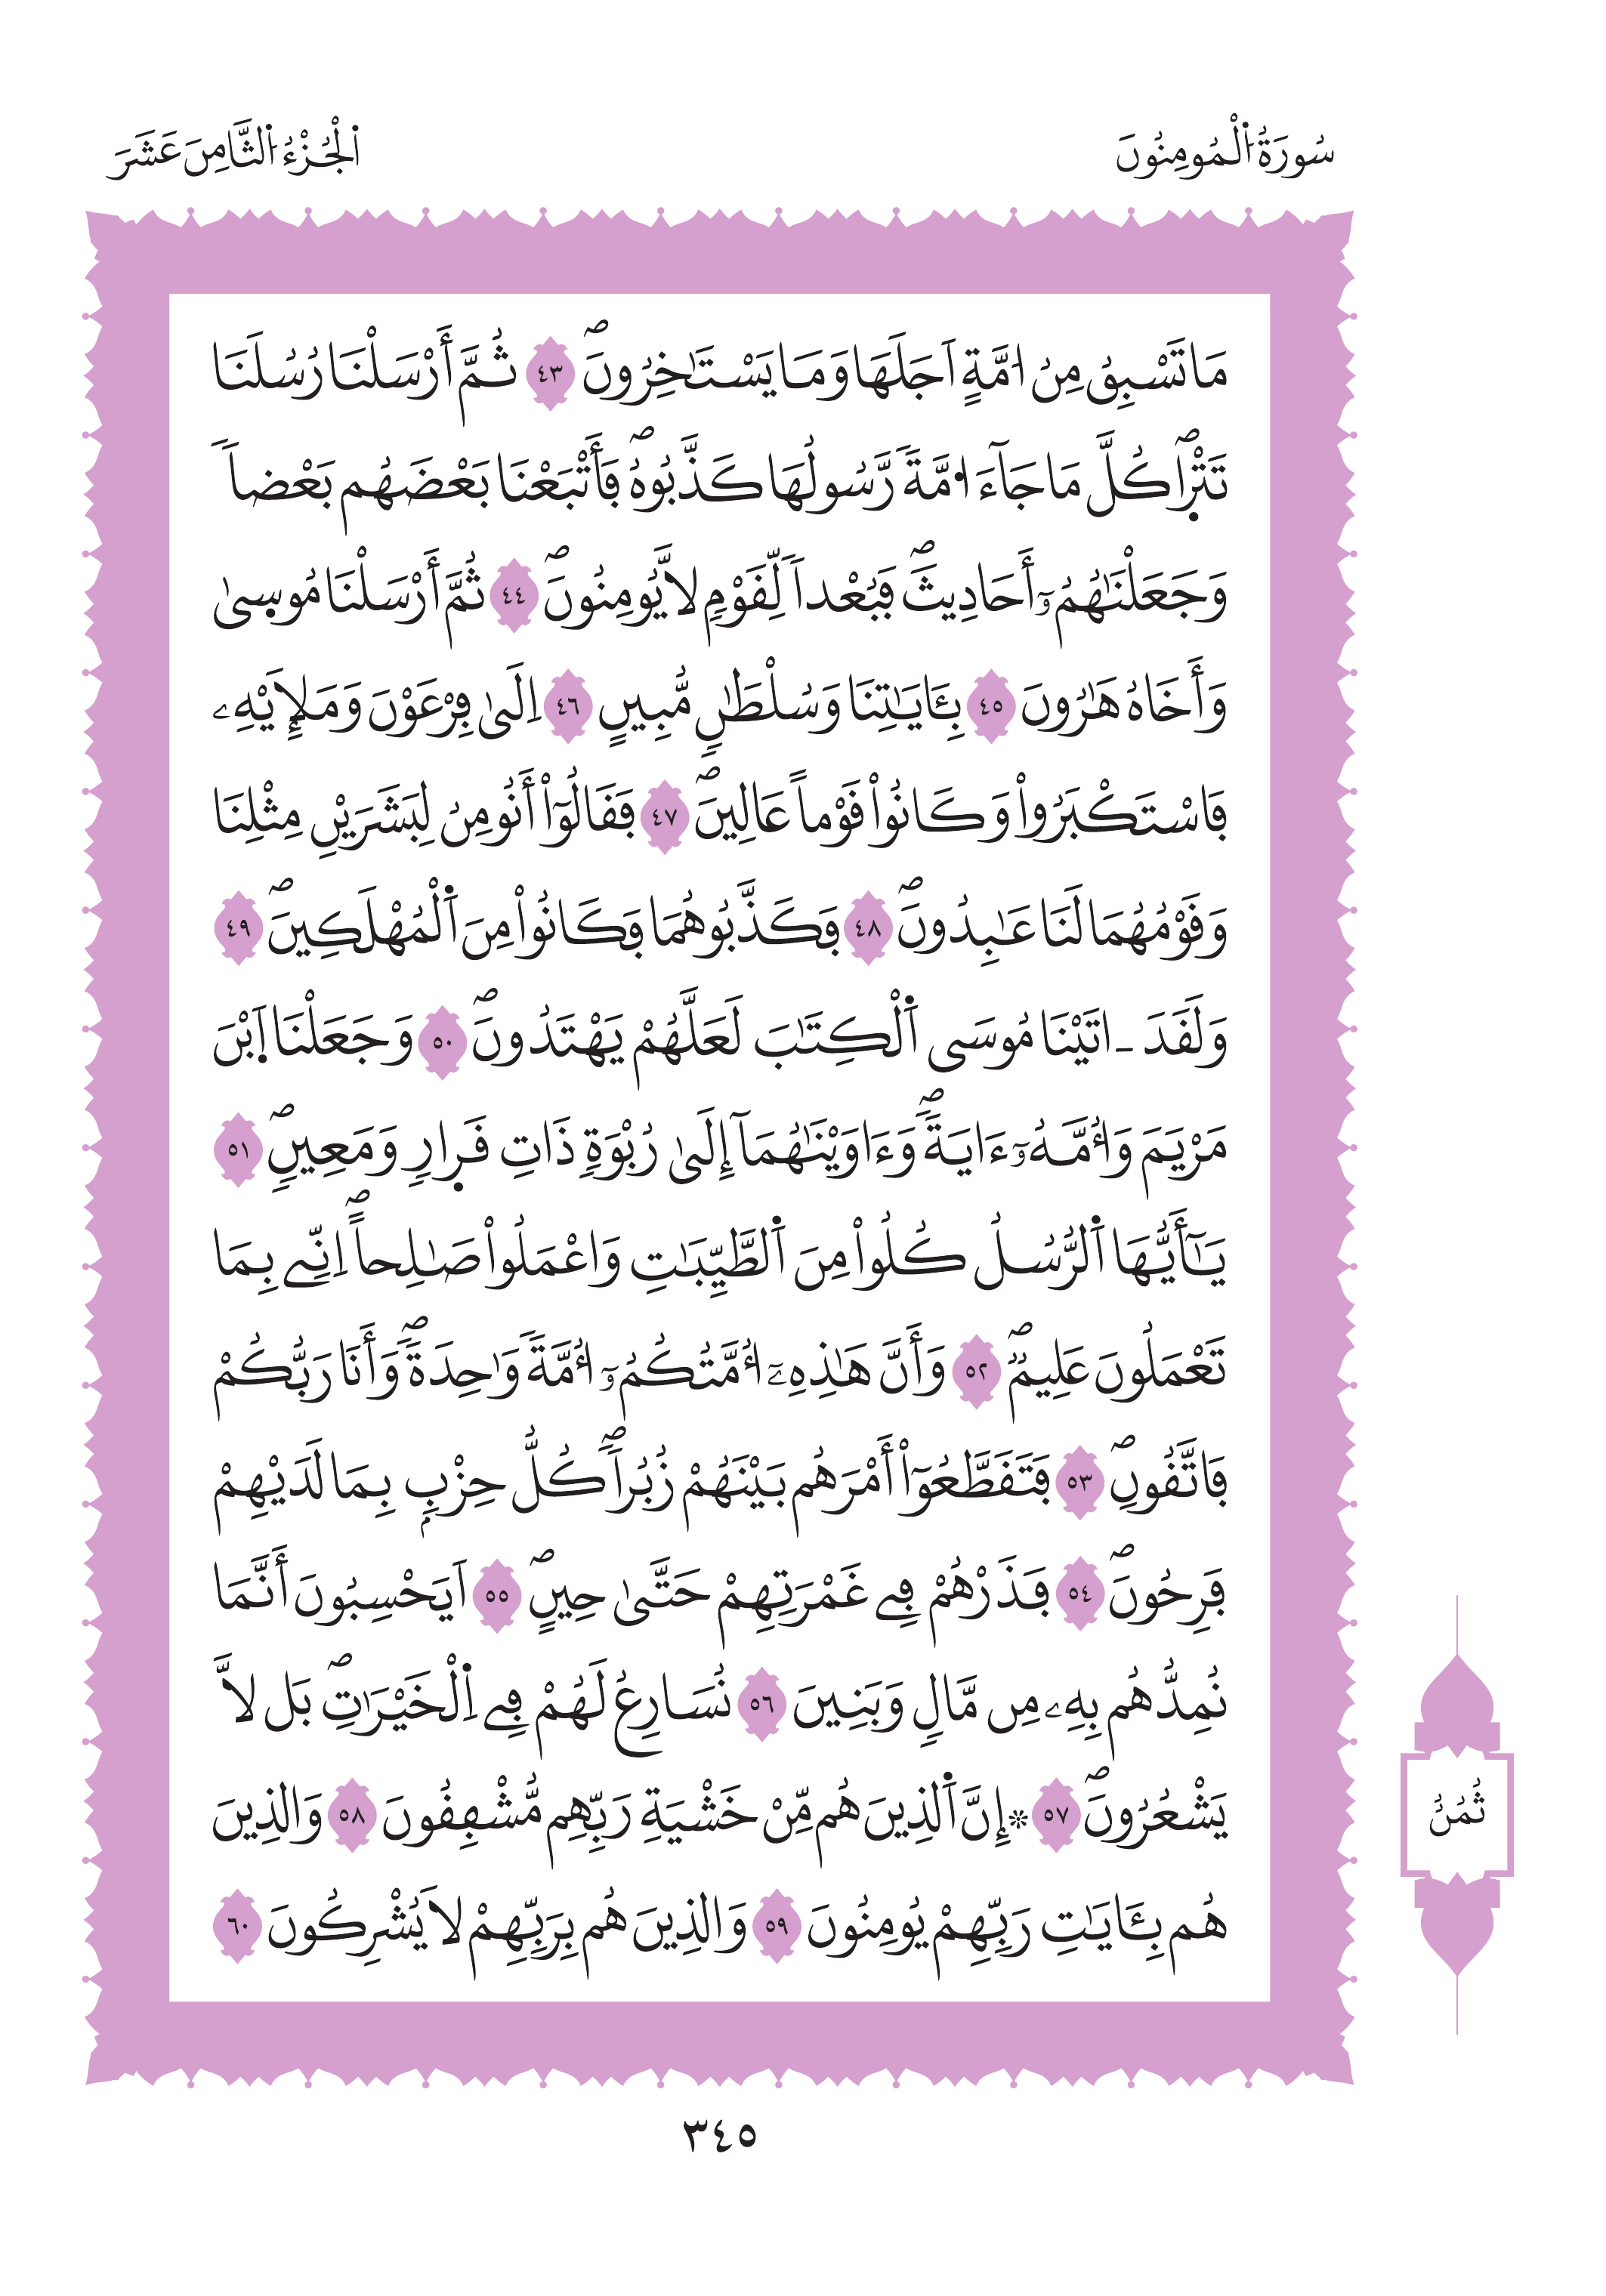 سُورَةُ اُ۬لْمُومِنُونَ
اَ۬لْجُزْءُ اُ۬لثَّامِنَ عَشَرَ
مَا تَسْبِقُ مِنُ ا۟مَّةٍ اَجَلَهَا وَمَا يَسْتَٰخِرُونَۖ ٤٣ ثُمَّ أَرْسَلْنَا رُسُلَنَا
تَتْر۪اۖ كُلَّ مَا جَآءَ ا۟مَّةَ رَّسُولُهَا كَذَّبُوهُۖ فَأَتْبَعْنَا بَعْضَهُم بَعْضاَ
وَجَعَلْنَٰهُمُۥٓ أَحَادِيثَۖ فَبُعْداَ لِّقَوْمٍ لَّا يُومِنُونَۖ ٤٤ ثُمَّ أَرْسَلْنَا مُوس۪يٰ
وَأَخَاهُ هَٰرُونَ ٤٥ بِـَٔايَٰتِنَا وَسُلْطَٰنٍ مُّبِينٍ ٤٦ اِلَيٰ فِرْعَوْنَ وَمَلَإِيْهِۦ
فَاسْتَكْبَرُواْ وَكَانُواْ قَوْماً عَالِينَۖ ٤٧ فَقَالُوٓاْ أَنُومِنُ لِبَشَرَيْنِ مِثْلِنَا
وَقَوْمُهُمَا لَنَا عَٰبِدُونَۖ ٤٨ فَكَذَّبُوهُمَا فَكَانُواْ مِنَ اَ۬لْمُهْلَكِينَۖ ٤٩
وَلَقَدَ ـ اتَيْنَا مُوسَي اَ۬لْكِتَٰبَ لَعَلَّهُمْ يَهْتَدُونَۖ ٥٠ وَجَعَلْنَا اَ۪بْنَ
مَرْيَمَ وَأُمَّهُۥٓ ءَايَةًۖ وَءَاوَيْنَٰهُمَآ إِلَيٰ رُبْوَةٍ ذَاتِ قَر۪ارٍ وَمَعِينٍۖ ٥١
يَٰٓأَيُّهَا اَ۬لرُّسُلُ كُلُواْ مِنَ اَ۬لطَّيِّبَٰتِ وَاعْمَلُواْ صَٰلِحاًۖ اِنِّے بِمَا
تَعْمَلُونَ عَلِيمٌۖ ٥٢ وَأَنَّ هَٰذِهِۦٓ أُمَّتُكُمُۥٓ أُمَّةَ وَٰحِدَةَۖ وَأَنَا رَبُّكُمْ
فَاتَّقُونِۖ ٥٣ فَتَقَطَّعُوٓاْ أَمْرَهُم بَيْنَهُمْ زُبُراَۖ كُلُّ حِزْبِۢ بِمَا لَدَيْهِمْ
فَرِحُونَۖ ٥٤ فَذَرْهُمْ فِے غَمْرَتِهِمْ حَتَّيٰ حِينٍۖ ٥٥ اَيَحْسِبُونَ أَنَّمَا
نُمِدُّهُم بِهِۦ مِن مَّالٍ وَبَنِينَ ٥٦ نُسَارِعُ لَهُمْ فِے اِ۬لْخَيْرَٰتِۖ بَل لَّا
يَشْعُرُونَۖ ٥٧ ۞ إِنَّ اَ۬لذِينَ هُم مِّنْ خَشْيَةِ رَبِّهِم مُّشْفِقُونَ ٥٨ وَالذِينَ
هُم بِـَٔايَٰتِ رَبِّهِمْ يُومِنُونَ ٥٩ وَالذِينَ هُم بِرَبِّهِمْ لَا يُشْرِكُونَ ٦٠
ثُمُنُ
٣٤٥